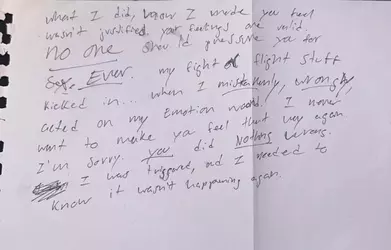 what I did, how I made you feel
wasn't justified. your feelings are valid.
no one should pressure you for
sex. Ever. my fight or flight stuff
kicked in... when I mistakenly, wrongly,
acted on my emotion needs. I never,
want to make you feel that way again
I'm sorry. you did Nothing wrong.
I was triggered, and I needed to
know it wasn't happening again.